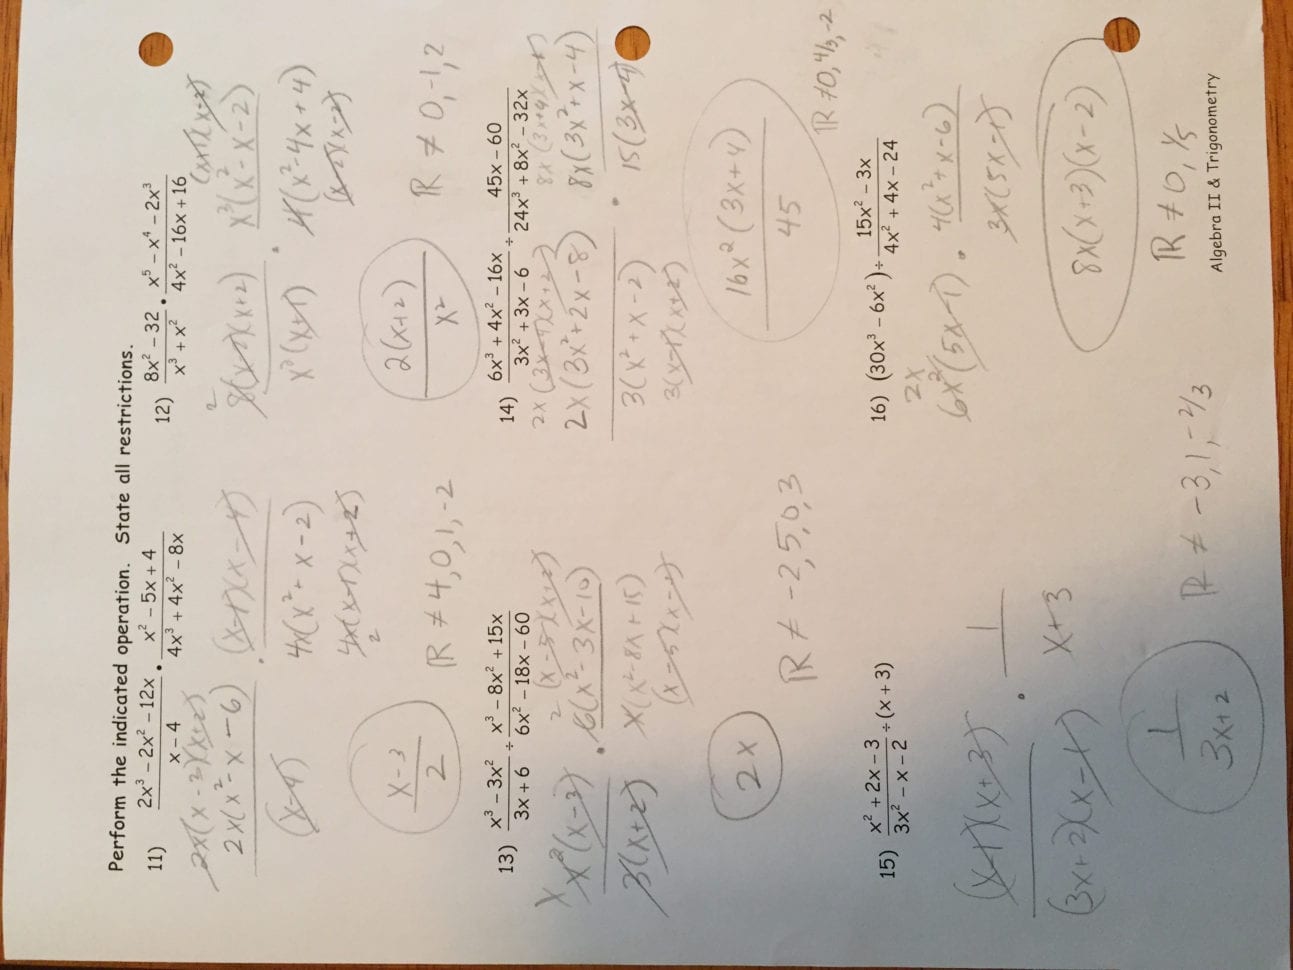 Perform the indicated operation. State all restrictions.
11) (2x³ − 2x² − 12x)/(x − 4) • (x² − 5x + 4)/(4x³ + 4x² − 8x)
2x(x − 3)(x+2) (x−1)(x − 4)
2x(x² − x − 6) / (x−4) • (x−1)(x−4) / 4x(x² + x − 2)
4x(x−1)(x+2)
2
(x−3)/2
ℝ ≠ 4, 0, 1, −2
12) (8x² − 32)/(x³ + x²) • (x⁵ − x⁴ − 2x³)/(4x² − 16x + 16)
(x+1)(x−2)
2
8(x−2)(x+2) / x²(x+1) • x³(x² − x − 2) / 4(x² − 4x + 4)
(x−2)(x−2)
2(x+2)/x²
ℝ ≠ 0, −1, 2
13) (x³ − 3x²)/(3x + 6) ÷ (x³ − 8x² + 15x)/(6x² − 18x − 60)
x 2 (x−5)(x+2)
x²(x−3) / 3(x+2) • 6(x² − 3x − 10) / x(x² − 8x + 15)
(x−5)(x−3)
2x
ℝ ≠ −2, 5, 0, 3
14) (6x³ + 4x² − 16x)/(3x² + 3x − 6) ÷ (45x − 60)/(24x³ + 8x² − 32x)
2x(3x−4)(x+2) 8x(3x+4)(x−1)
2x(3x² + 2x − 8) / 3(x² + x − 2) • 8x(3x² + x − 4) / 15(3x−4)
3(x−1)(x+2)
16x²(3x+4)/45
ℝ ≠ 0, 4/3, −2
15) (x² + 2x − 3)/(3x² − x − 2) ÷ (x + 3)
(x−1)(x+3) / (3x+2)(x−1) • 1/(x+3)
1/(3x+2)
ℝ ≠ −3, 1, −2/3
16) (30x³ − 6x²) ÷ (15x² − 3x)/(4x² + 4x − 24)
2x
6x²(5x−1) • 4(x² + x − 6) / 3x(5x−1)
8x(x+3)(x−2)
ℝ ≠ 0, 1/5
Algebra II & Trigonometry